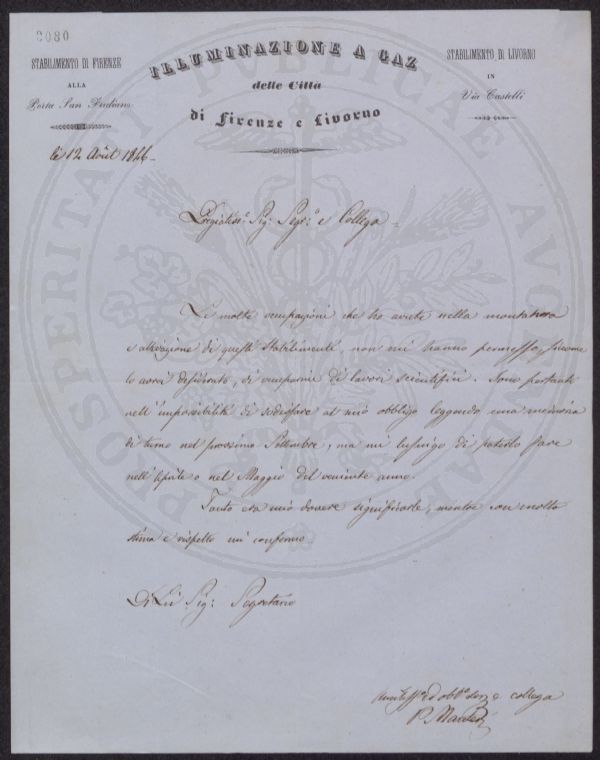 3080
STABILIMENTO DI FIRENZE
ALLA
Porta San Frediano
ILLUMINAZIONE A GAZ
delle Città
di Firenze e Livorno
STABILIMENTO DI LIVORNO
IN
Via Castelli
PROSPERITATI PUBLICAE AVGENDAE
le 12 1846
Pregiatiss.º Sig.r Segr.º e Collega
Le molte occupazioni che ho avute nella montatura
e attivazione di questi Stabilimenti, non mi hanno permesso, siccome
lo avrei desiderato, di occuparmi di lavori scientifici. Sono pertanto
nell'impossibilità di sodisfare al mio obbligo leggendo una memoria
di turno nel prossimo Settembre, ma mi lusingo di poterlo fare
nell'Aprile o nel Maggio del veniente anno.
Tanto era mio dovere significarle, mentre con molta
stima e rispetto mi confermo
Di Lei Sig.r Segretario
e collega
P.